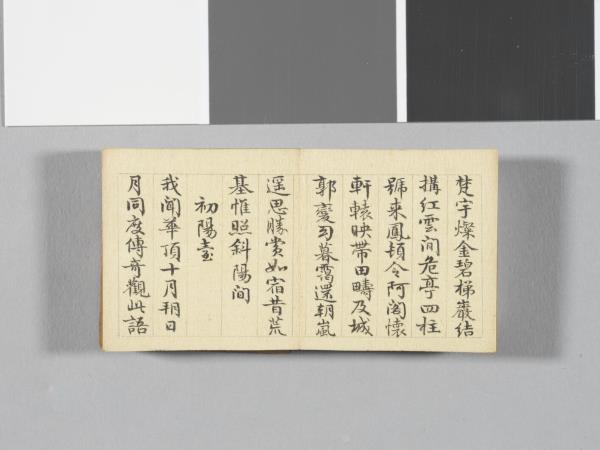 梵宇燦金碧梯巖結
搆紅雲間危亭四柱
號来鳳頓令阿閣懷
軒轅映帶田疇及城
郭變幻暮靄還朝嵐
遥思勝賞如宿昔荒
基惟照斜陽間
初陽臺
我聞華頂十月朔日
月同度傳奇觀此語